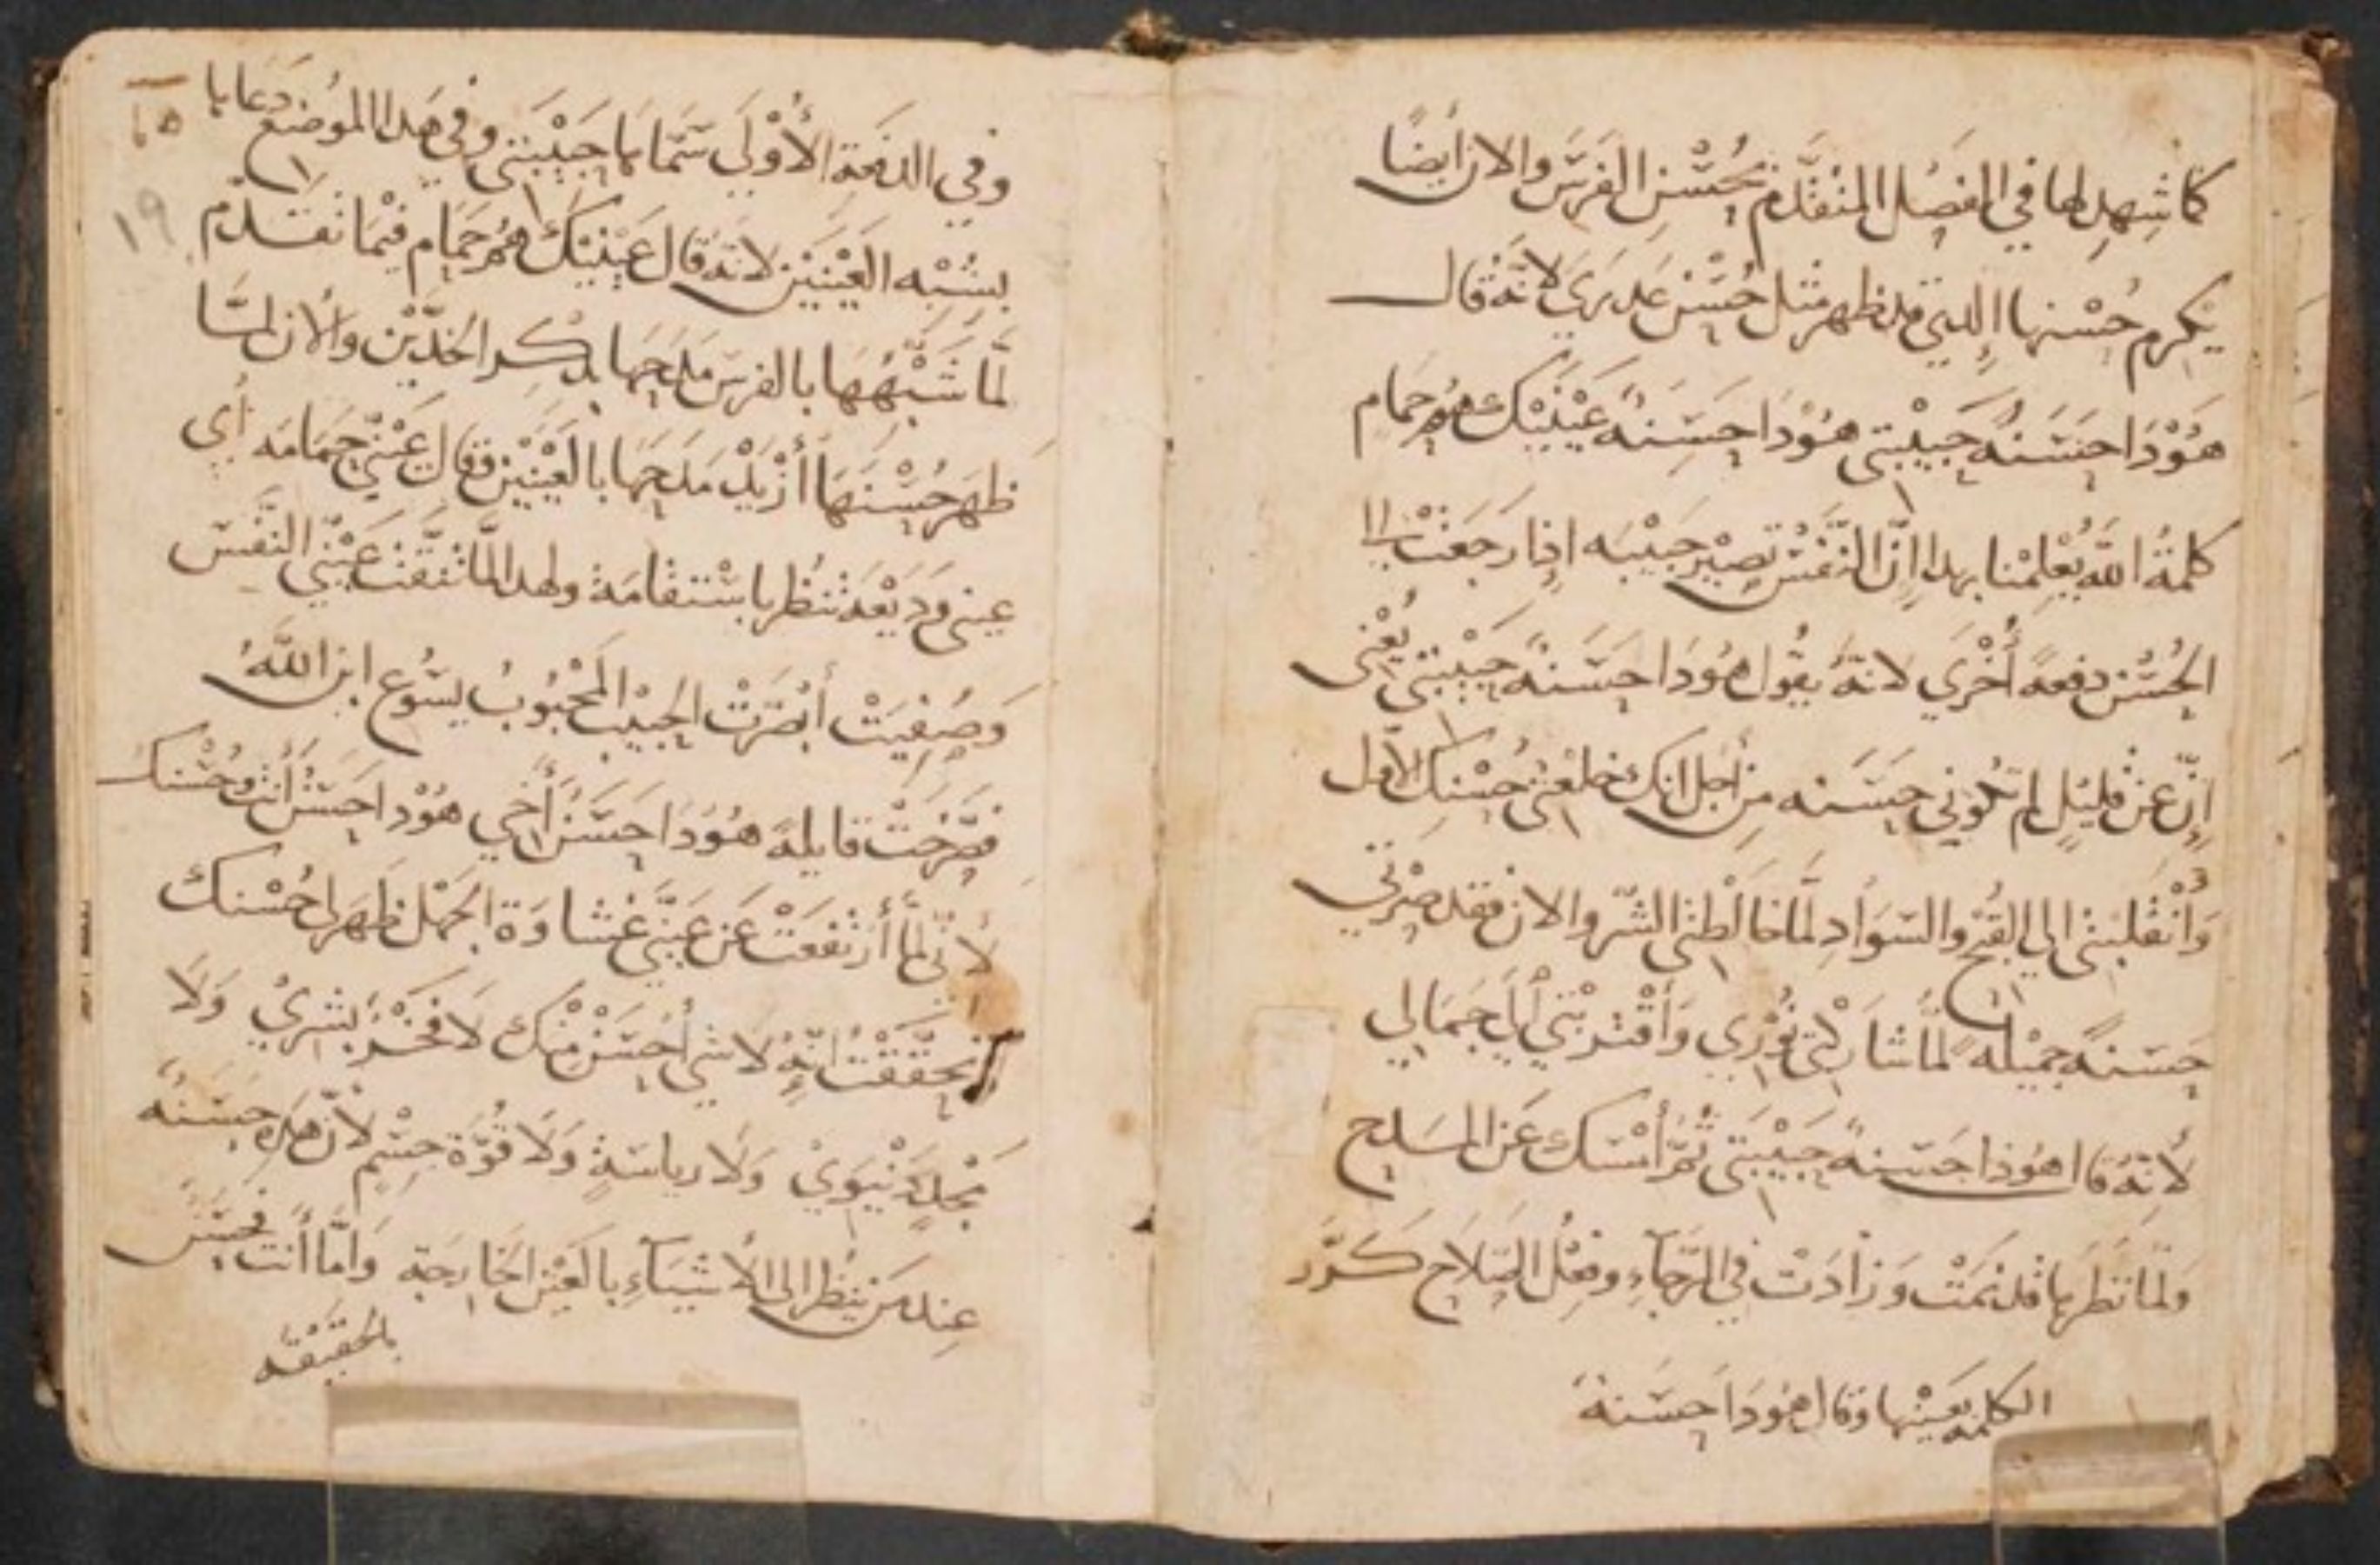 كما شهد لها في الفصل المتقدم بحسن الفرس والان ايضًا
يكرم حسنها الدي قد ظهر مثل حسن عدري لانه قال
هُوْدَا حسَنةٌ حبيْبتي هُوْدَا حسَنةً عيْنيْك هم حَمَام
كلمةُ اللّه يُعْلِمْنا بهدا إنّ النّفسْ تصيْر حبيْبه اذِا رجَعَتْ الا
الحُسْن دفعة أُخْرَي لانهُ يقُول هوُدَا حسَنةً حبيْبتي يعْنى
إنّ عن قليْلٍ لم تكوني حسَنه مِن أجل انك خلعتي حسْنِك الاول
وَأنْقلبتى الي القبُح والسّوَادِ لمّا خالطتى الشرّ والان فقد صِرْتي
حسَنةً جميْلهً لمّا شاركتى نُوْرِي وَأقْترَبْتي اليَ جمَالي
لأنهُ قال هوُذا حسَنةً حبيْبَتي ثُمّ أمْسَك عَن المدح
وَلمّا نظرها قد نمَتْ وَزادَتْ في الرّجآءِ وفعْل الصّلاح كرّرَ
الكلمة بعَيْنها وَقال هوُدَا حسَنة
٦٥
١٩
وفي الدفعَة الأوْلَي سَمّاها حبيْبَتي وفي هَدا الموُضع دَعَاها
بشِبْه العَيْنيْن لانهُ قال عيْنيْك هم حَمَام فيْمَا تقدّم
لمّا شَبّهَهَا بالفرسَ مدَحهَا بدكر الخدّيْن والأن لمّا
ظهَر حسْنهَا أزْيدْ مَدحهَا بالعَيْنيْن فقال عَيْني حمَامَه أي
عيني وَديْعَة تنظُر باسْتقامَة ولهدا لمّا تنقّت عَيْني النّفسَ
وَصُفِيَتْ أبْصَرَتْ الحبيْب المحْبُوبُ يسُوع ابن اللّه
فصَرَخَتْ قايلةً هوُدَا حسَنٌ أخي هوُدا حسَنٌ أنت وحُسْنك
لأنّي لمّا أرْتفعَتْ عَن عَيْنيّ غشاوَة الجهْل ظهَر لي حُسْنك
تحقّقْتُ انهُ لا شي أحسَنْ منْك لا فخرٌ بشريْ وَلا
مجْدٍ دنْيَوِيْ وَلا رياسَةٍ وَلا قُوّة جسْمٍ لأنّ هَدِه حسَنهً
عِند مَن ينظُر الى الأشيَآءِ بالعَيْن الخارجَة وَأمّا أنت فحسَن
بالحقيْقه